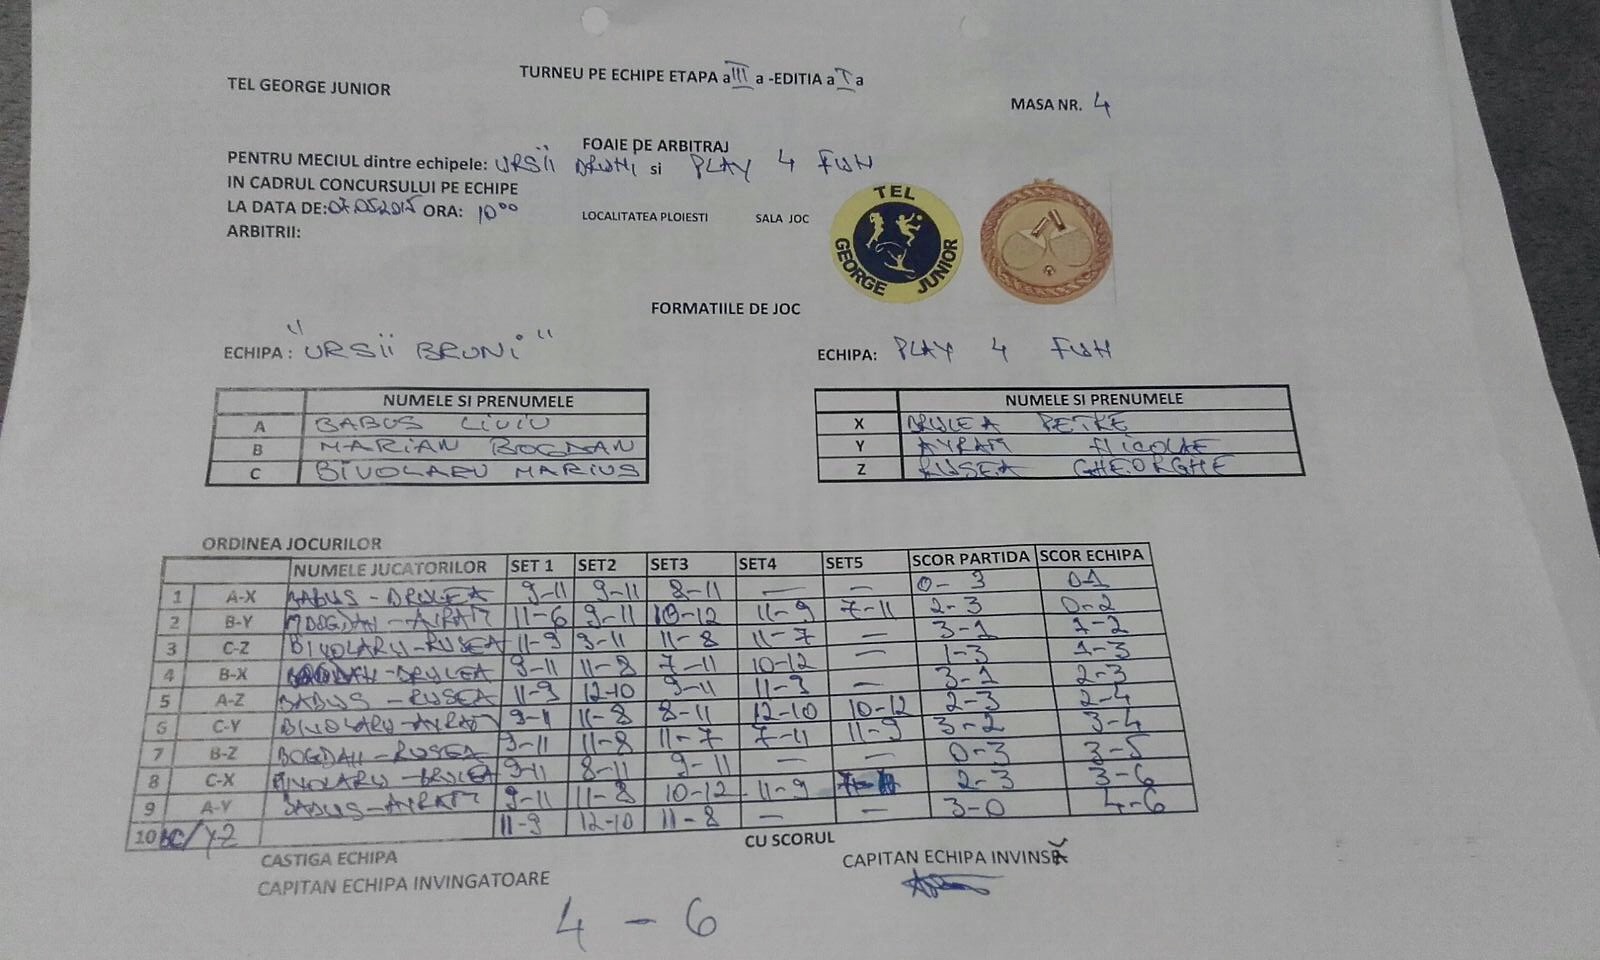 TURNEU PE ECHIPE ETAPA a III a -EDITIA a I a
TEL GEORGE JUNIOR
MASA NR. 4
FOAIE DE ARBITRAJ
PENTRU MECIUL dintre echipele: URSII BRUNI si PLAY 4 FUN
IN CADRUL CONCURSULUI PE ECHIPE
LA DATA DE:07.05.2015 ORA: 10⁰⁰ LOCALITATEA PLOIESTI SALA JOC
ARBITRII:
TEL GEORGE JUNIOR
FORMATIILE DE JOC
ECHIPA: "URSII BRUNI" ECHIPA: PLAY 4 FUN
NUMELE SI PRENUMELE NUMELE SI PRENUMELE
A BABUS LIVIU X DRULEA PETRE
B MARIAN BOGDAN Y AVRAM NICOLAE
C BIVOLARU MARIUS Z RUSEA GHEORGHE
ORDINEA JOCURILOR
NUMELE JUCATORILOR SET 1 SET2 SET3 SET4 SET5 SCOR PARTIDA SCOR ECHIPA
1 A-X BABUS - DRULEA 9-11 9-11 8-11 — — 0-3 0-1
2 B-Y BOGDAN - AVRAM 11-6 9-11 10-12 11-9 7-11 2-3 0-2
3 C-Z BIVOLARU-RUSEA 11-9 9-11 11-8 11-7 — 3-1 1-2
4 B-X BOGDAN-DRULEA 9-11 11-8 7-11 10-12 — 1-3 1-3
5 A-Z BABUS - RUSEA 11-9 12-10 9-11 11-3 — 3-1 2-3
6 C-Y BIVOLARU-AVRAM 9-11 11-8 8-11 12-10 10-12 2-3 2-4
7 B-Z BOGDAN-RUSEA 9-11 11-8 11-7 7-11 11-9 3-2 3-4
8 C-X BIVOLARU-DRULEA 9-11 8-11 9-11 — — 0-3 3-5
9 A-Y BABUS-AVRAM 9-11 11-8 10-12 11-9 2-3 3-6
10 BC/YZ 11-9 12-10 11-8 — — 3-0 4-6
CASTIGA ECHIPA CU SCORUL
CAPITAN ECHIPA INVINGATOARE CAPITAN ECHIPA INVINSĂ
4 - 6